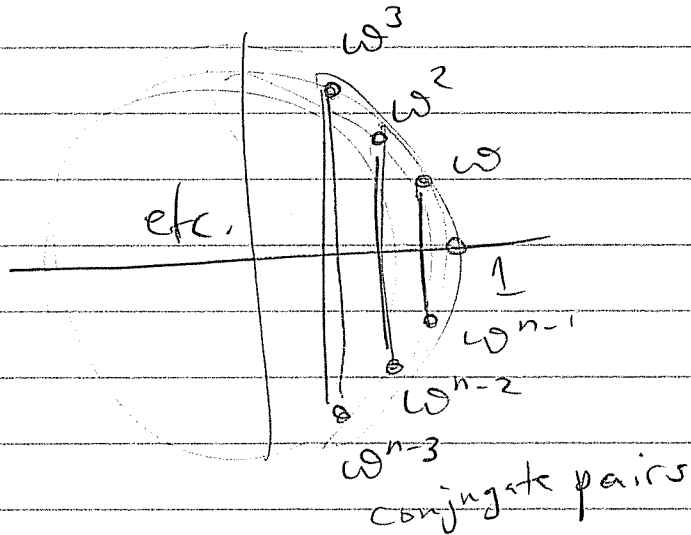 ω³
ω²
ω
etc.
1
ωⁿ⁻¹
ωⁿ⁻²
ωⁿ⁻³
conjugate pairs